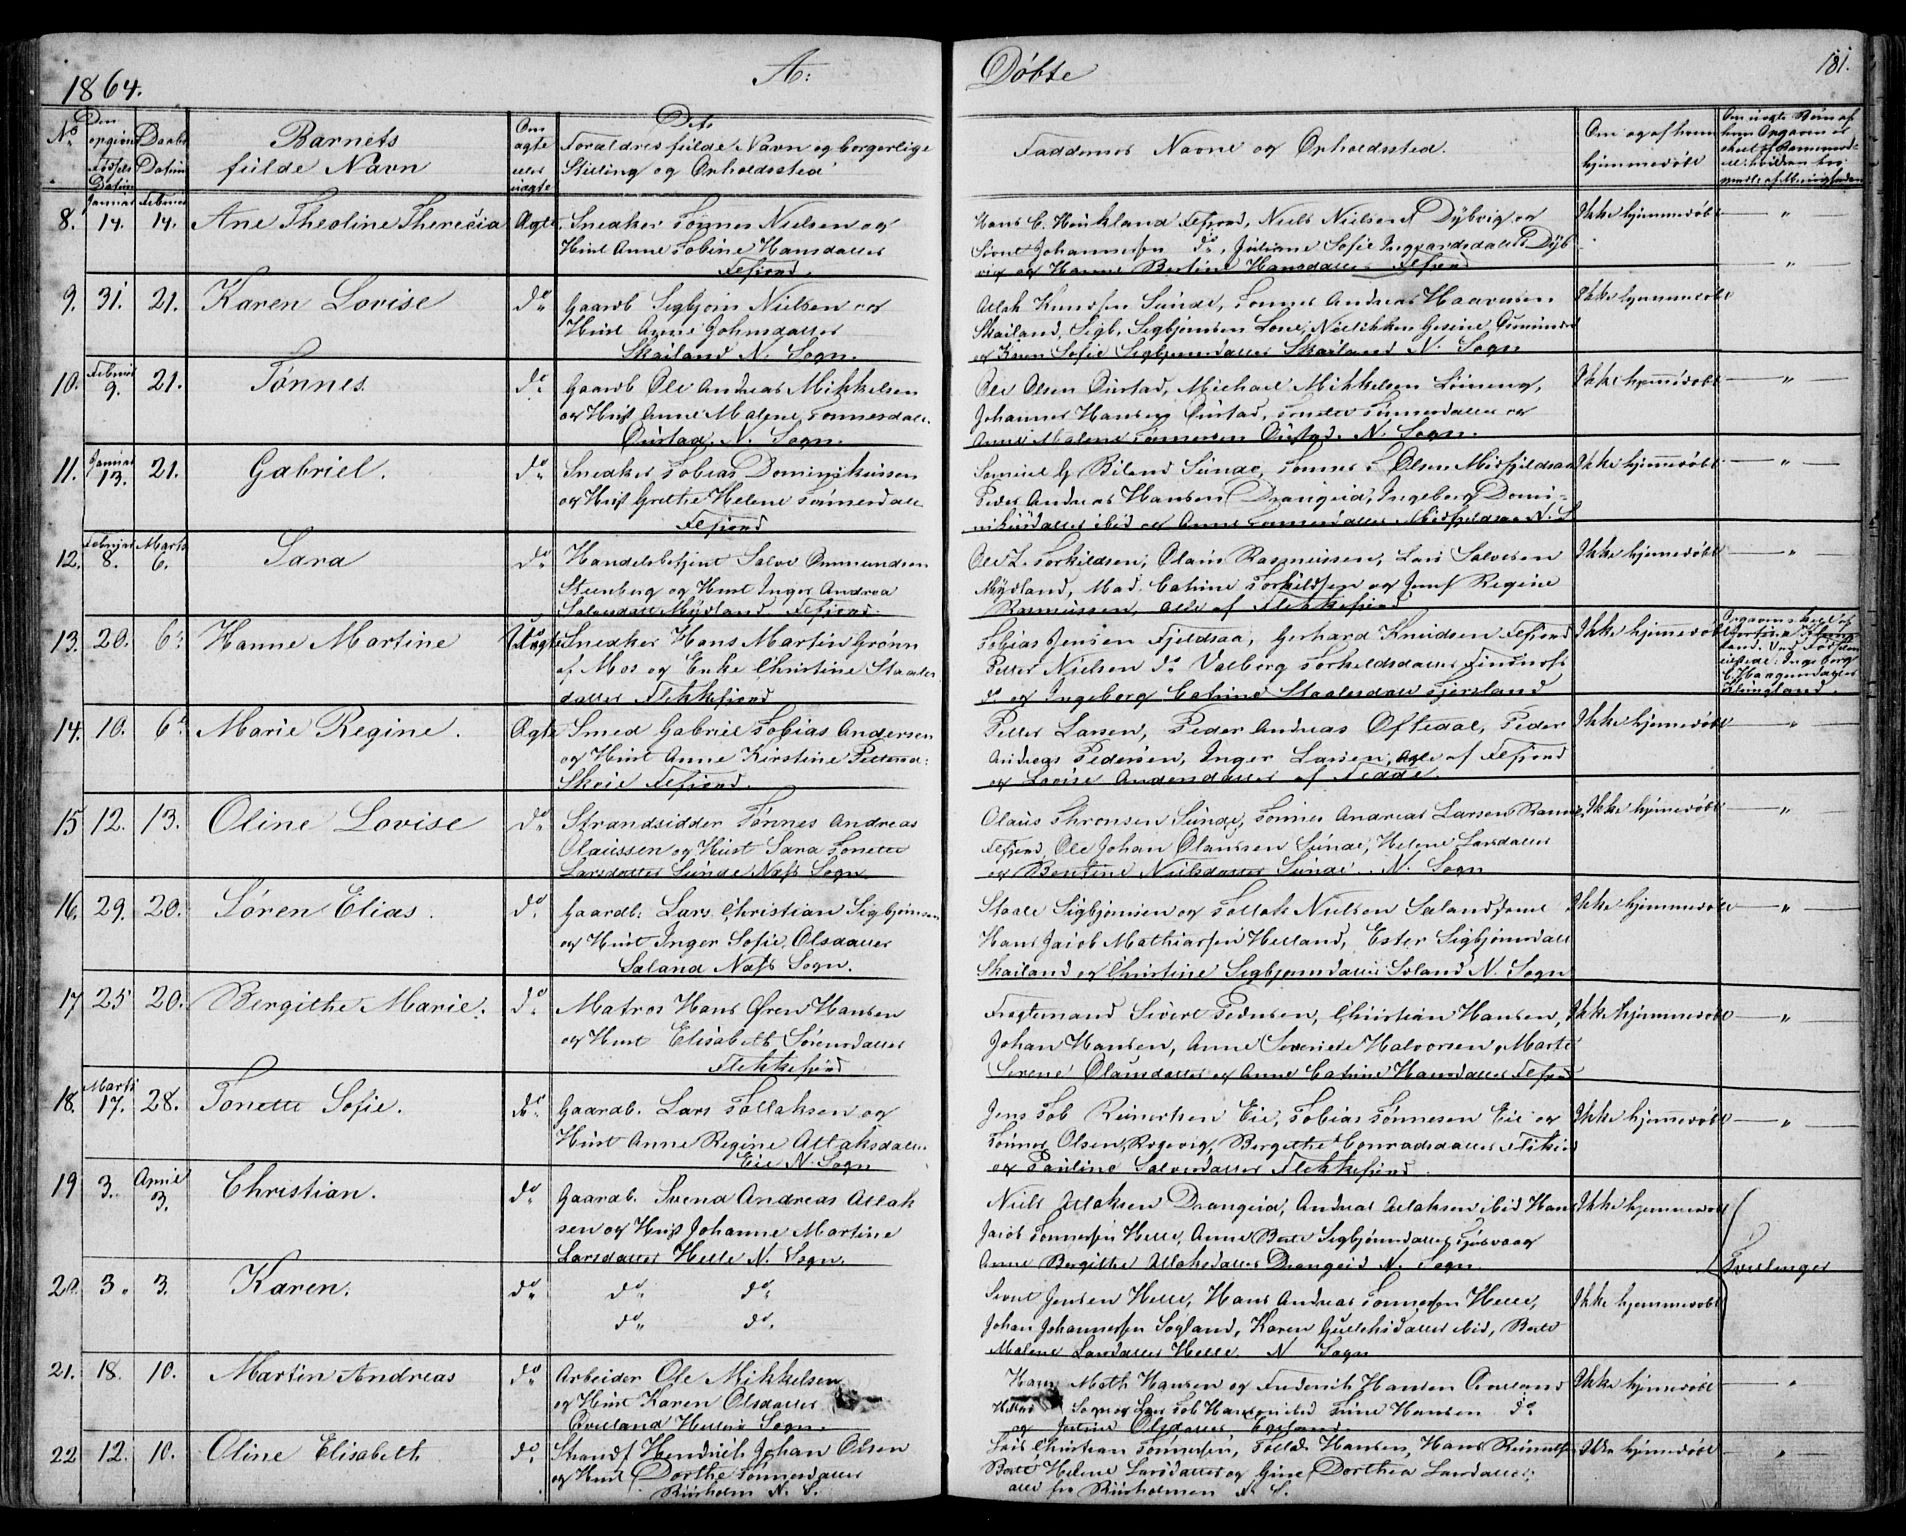 1864.
A:
Døbte
181.
No
Den opgivne Fødsels Datum
Daabs Datum
Barnets
fulde Navn
Om ægte eller uægte
Dets
Forældres fulde Navn og borgerlige
Stilling og Opholdssted
Faddernes Navne og Opholdssted.
Om og af hvem
hjemmedøbt
8. Januar 14. Februar 14. Ane Theoline Theresia Ægte
Snedker Tønnes Nielsen og
Hust Anne Tobine Hansdatter
Flefjord.
Hans C. Heukland Flefjord, Niels Nielsen Dybvig og
Sivert Johannessen do, Juliane Sofie Ingvardsdatter Dyb
vig og Hanne Bertine Hansdatter Flefjord
Ikke hjemmedøbt — " —
9. 31. 21. Karen Lovise do
Gaardb Sigbjørn Nielsen og
Hust Anne Johnsdatter
Skailand N. Sogn.
Atlak Knudsen Sunde, Tønnes Andreas Haaversen
Skailand, Sigb. Sigbjønsen Lone,
og Karen Sofie Sigbjørnsdatter Skailand N. Sogn
Ikke hjemmedøbt
10. Februar 9. 21. Tønnes do
Gaardb Ole Andreas Mikkelsen
og Hust Anne Malene Tønnesdatter
N. Sogn.
Ole Olsen Michael Mikkelsen
Johannes Hansen Tønnesdatter og
Anne Malene Tønnesen N. Sogn.
Ikke hjemmedøbt — " —
11. Januar 13. 21. Gabriel. do
Snedker Tobias Dominikussen
og Hust Grethe Helene Tønnesdatter
Flefjord
Samuel G Biland Sunde, Tønnes Olsen Midfjeldsaa
Peder Andreas Hansen Drangeid, Ingeborg Domi-
nikusdatter ibid og Anne Tønnesdatter Midfjeldsaa N. S
Ikke hjemmedøbt — " —
12. Februar 8. Marts 6. Sara do
Handelsbetjent Salve Ommundsen
Steenberg og Hust Inger Andrea
Salvesdatter Mydland Flefjord.
Ole T. Torkildsen, Olaus Rasmussen, Lars Salvesen
Mydland, Mad. Catrine Torkildsen og Jomf Regine
Rasmussen, Alle af Flekkefjord
Ikke hjemmedøbt — " —
13. 20. 6. Hanne Martine Uægte
Snedker Hans Martin Grønn
af Mos og Enke Christine Staales
datter Flekkefjord
Tobias Jensen Fjeldsaa, Gerhard Knudsen Flefjord
Petter Nielsen do Valborg Torkeldsdatter
do og Ingeborg Catrine Staalesdatter
Ikke hjemmedøbt
14. 10. 6. Marie Regine. Ægte
Smed Gabriel Tobias Andersen
og Hust Anne Kirstine Petters.
Flefjord.
Petter Larsen, Peder Andreas Oftedal, Peder
Andreas Pedersen, Inger Larsen, alle af Flefjord
og Lovise Andersdatter af Fedde.
Ikke hjemmedøbt — " —
15 12. 13. Oline Lovise do
Strandsidder Tønnes Andreas
Olaussen og Hust Sara Tonette
Larsdatter Sunde Næss Sogn.
Olaus Thronsen Sunde, Tønnes Andreas Larsen
Flefjord, Ole Johan Olaussen Sunde, Helene Larsdatter
og Bentine Nielsdatter Sunde. N. Sogn
Ikke hjemmedøbt — " —
16. 29. 20. Søren Elias. do
Gaardb. Lars Christian Sigbjørnsen
og Hust Inger Sofie Olsdatter
Saland Næss Sogn.
Staale Sigbjørnsen og Tollak Nielsen Saland
Hans Jacob Mathiassen Helland, Ester Sigbjørnsdatt
Skailand og Christine Sigbjørnsdatter Soland N. Sogn
Ikke hjemmedøbt — " —
17 25 20. Bergithe Marie. do
Matros Hans Ørend Hansen
og Hust Elisabeth Sørensdatter
Flekkefjord
Fragtemand Sivert Pedersen, Christian Hansen,
Johan Hansen, Anne Severine Halvorsen, Marte
Serene Olausdatter og Anne Catrine Hansdatter Flefjord
Ikke hjemmedøbt — " —
18. Marts 17. 28. Tonette Sofie. do
Gaardb. Lars Tollaksen og
Hust Anne Regine Atlaksdatter
Eie N. Sogn
Jens Tob Reinertsen Eie, Tobias Tønnesen Eie og
Tønnes Olsen, Bergithe Conradsdatter
og Pauline Salvesdatter Flekkefjord.
Ikke hjemmedøbt — " —
19 3. April 3. Christian. do
Gaardb. Svend Andreas Atlak
sen og Hust Johanne Martine
Larsdatter Helle N. Sogn.
Niels Atlaksen Drangeid, Andreas Atlaksen ibid Hans
Jacob Tønnessen Helle, Anne Berte Sigbjørnsdatter
Anne Bergithe Atlaksdatter Drangeid N. Sogn
Ikke hjemmedøbt
Tvillinger
20. 3. 3. Karen. do
do do
do do
Sivert Jensen Helle, Hans Andreas Tønnessen Helle,
Johan Johannessen Sogland, Karen ibid, Berte
Malene Larsdatter Helle. N Sogn
Ikke hjemmedøbt
21. 18. 10. Martin Andreas do
Arbeider Ole Mikkelsen
og Hust Karen Olsdatter
Sogn.
Hans Math Hansen og Frederik Hansen
Hansen do
og Olsdatter
Ikke hjemmedøbt — " —
22 12. 10. Oline Elisabeth do
Strands Hendrik Johan Olsen
og Hust Dorthe Tønnesdatter
Riisholm N. S.
Lars Christian Tønnessen, Hansen, Hans
Berte Helene Larsdatter og Gine Dorthea Larsdatter
alle fra Riisholmen N. S.
Ikke hjemmedøbt "